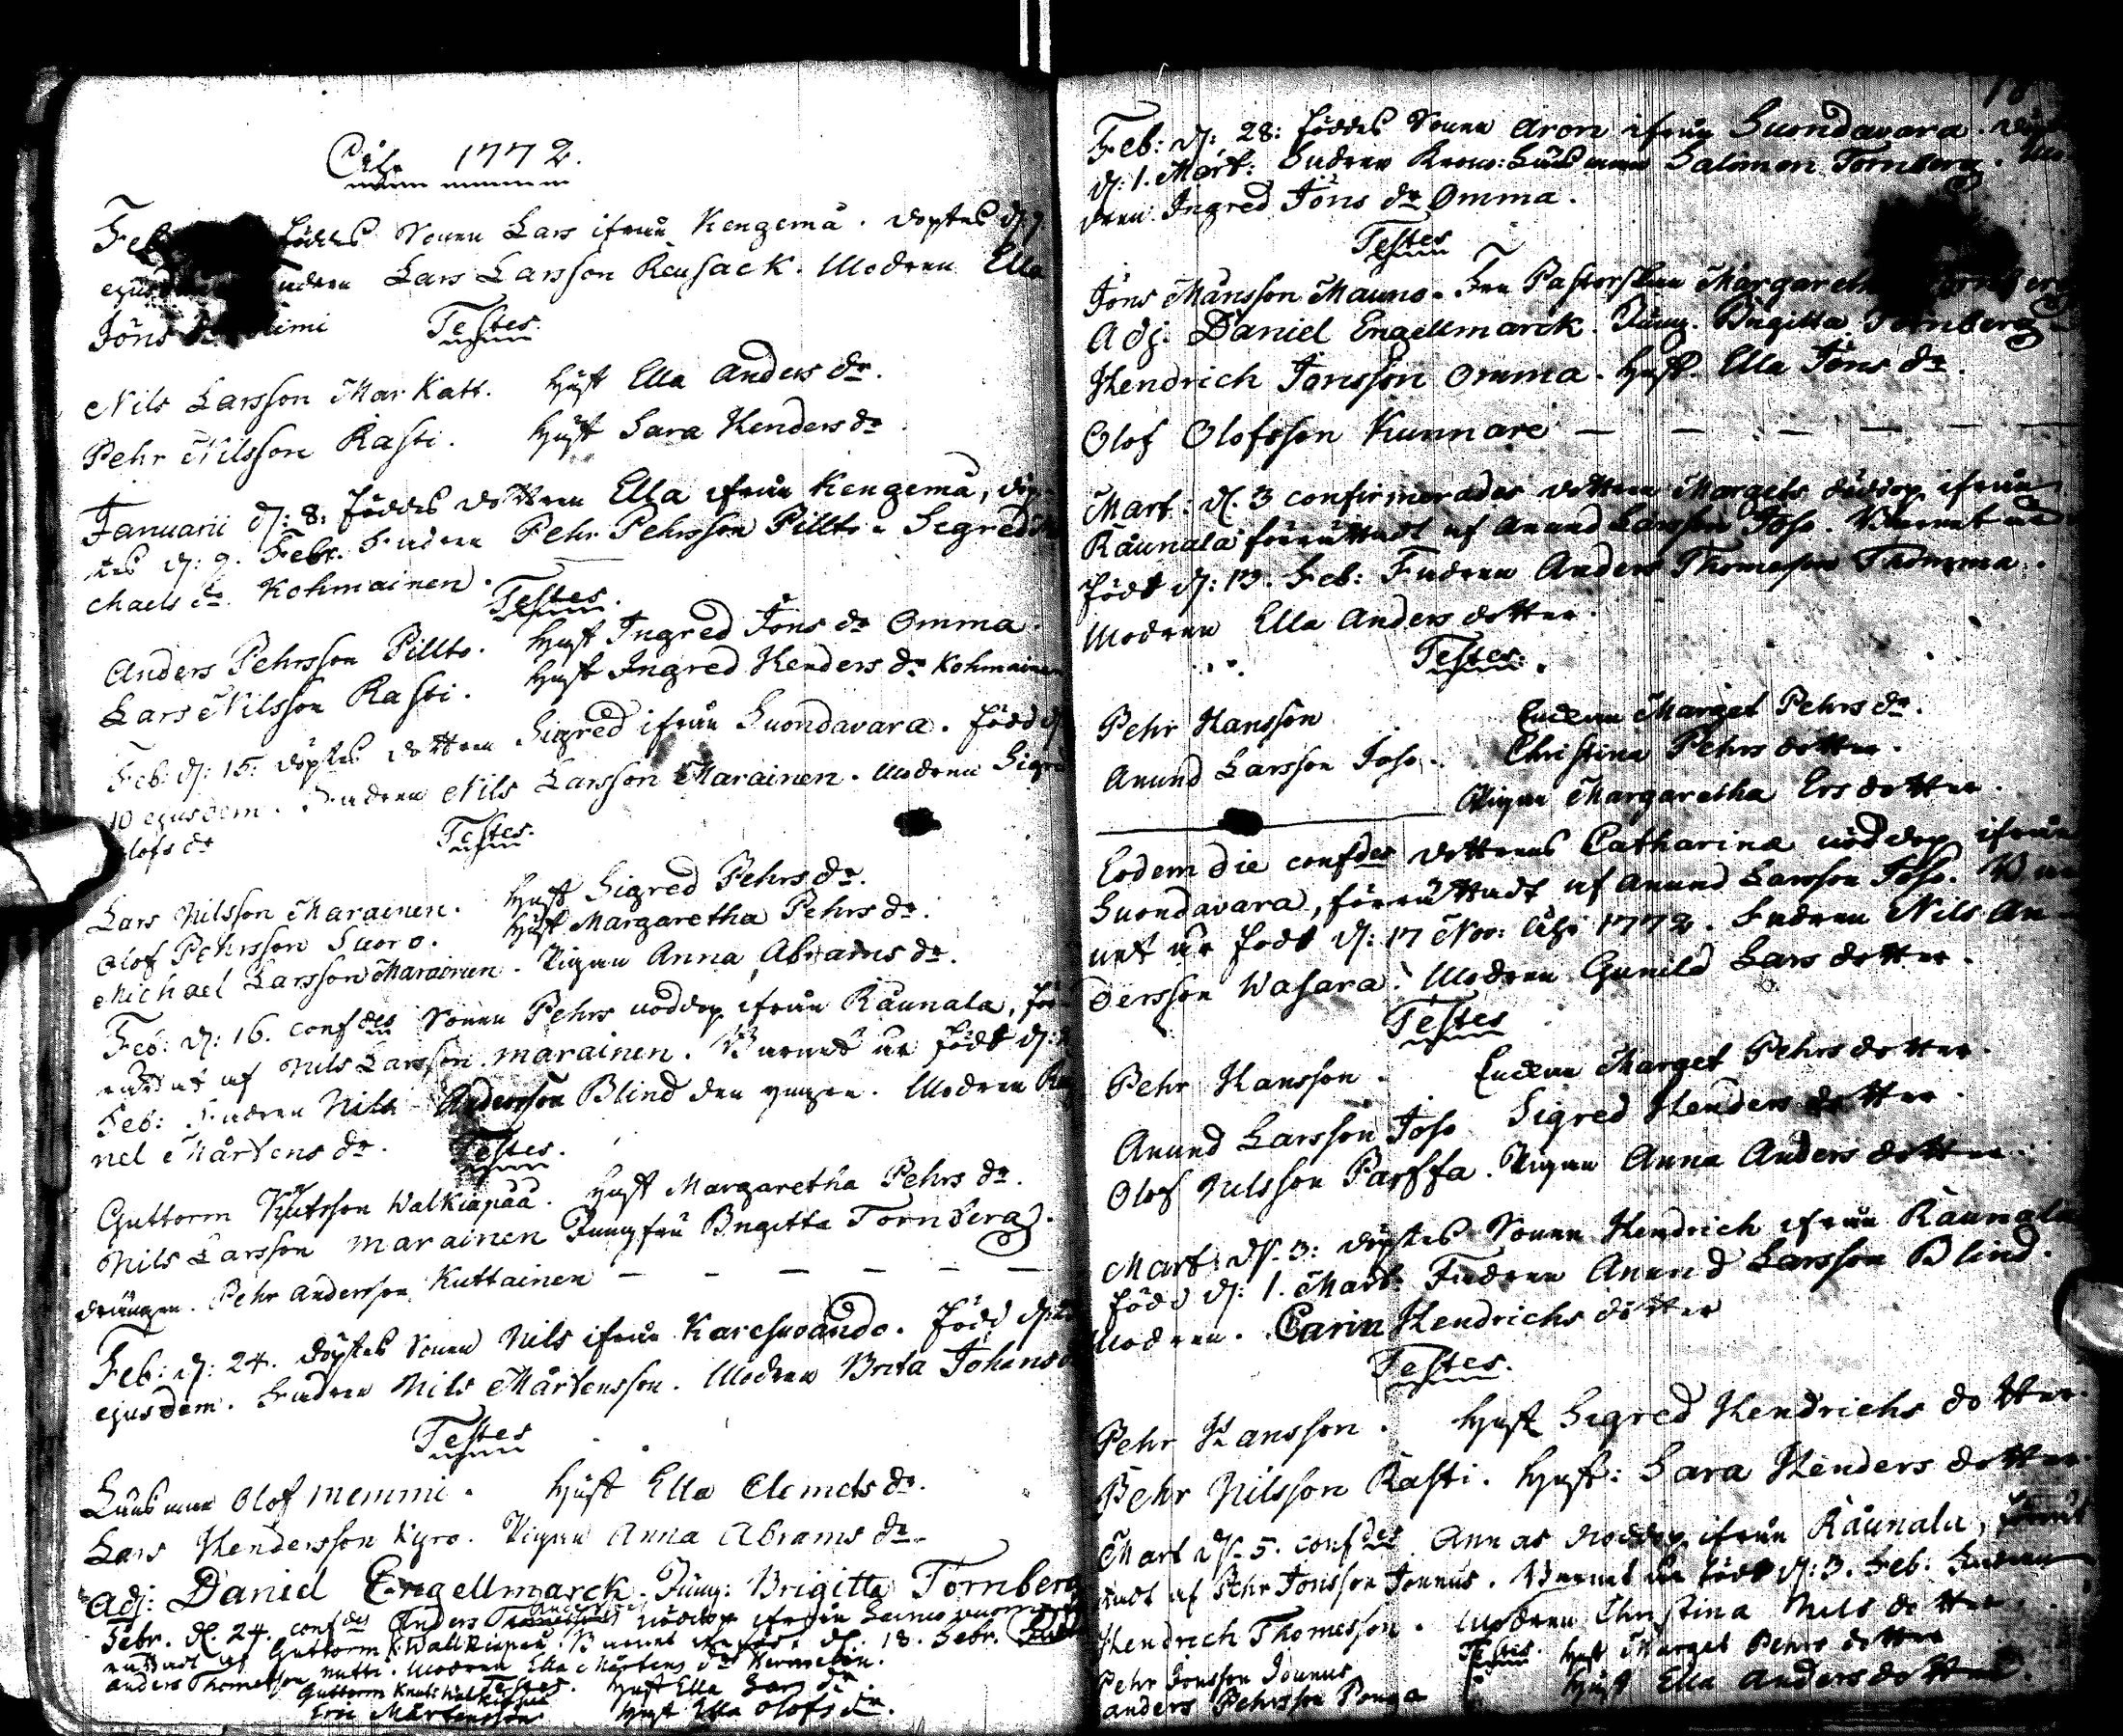 1772.
Feb föddes Sonen Lars ifrån Kengemä. döptes d: 9
ejusd Fadren Lars Larsson Rensack. Modren Ella
Jöns
Testes.
Nils Larsson Markatt. Hust Ella Anders dr.
Pehr Nilsson Rasti. Hust Sara Henders dr
Januarii d: 8. föddes dottren Ella ifrån Kengemä, döp-
tes d: 9. Febr. Fadren Pehr Pehrsson Pillto. Segred
chaels dr Kohmainen.
Testes.
Anders Pehrsson Pillto. Hust Ingred Jöns dr Omma.
Lars Nilsson Rasti. Hust Ingred Henders dr Kohmainen
Feb: d: 15. döptes dottren Sigred ifrån Suondavara. född d
10 ejusdem. Fadren Nils Larsson Marainen. Modren Sigre
Olofs dr
Testes.
Lars Nilsson Marainen. Hust Sigred Pehrs dr.
Olof Pehrsson Suoro. Hust Margaretha Pehrs dr.
Michael Larsson Marainen. Pigan Anna Abrams dr.
Feb: d: 16. confdes Sonen Pehrs nöddop ifrån Räunala, för-
rättat af Nils Larsson marainen. Barnet är födt d:
Feb: Fadren Nils Andersson Blind den yngre. Modren
nel Mårtens dr.
Testes.
Guttorm Knutsson Walkiapää. Hust Margaretha Pehrs dr.
Nils Larsson marainen Jungfru Brigitta Tornberg.
drängen. Pehr Andersson Kuttainen — — — — — —
Feb: d: 24. döptes Sonen Nils ifrån Karesuando. född d:
ejusdem. Fadren Nils Mårtensson. Modren Brita Johans
Testes
Länsman Olof memmi. Hust Ella Clemets dr.
Lars Hendersson Kyro. Pigan Anna Abrams dr.
Adj: Daniel Engellmarck. Jung: Brigitta Tornberg
Febr. d. 24. confdes Anders nöddop ifrån
rättadt af Guttorm K: Walkiapää. Barnet är födt d: 18. Febr.
Anders Thomesson nutti. Modren Ella Mårtens dr
Testes.
Guttorm Knuts Walkiapää Hust Ella Lars dr.
Eric Mårtensson Hust Ella Olofs dr.
Feb: d: 28: föddes Sonen Aron ifrån Suondavara. döpt
d: 1. Mart: Fadren Krono: Länsman Salomon Tornberg. Mo-
dren Ingred Jöns dr Omma.
Testes
Jöns Månsson Mauno. Fru Pastorskan Margareth
Adj. Daniel Engellmarck. Jung. Brigitta Tornberg
Hendrich Jonsson Omma. Hust. Ella Jöns dr.
Olof Olofsson Kunnare — — — — — —
Mart: d. 3 confirmerades dottren Margets nöddop ifrån
Räunala förrättadt af Anund Larsson Joso. Barnet är
födt d: 13. Feb: Fadren Anders Thomesson Thomma.
Modren Ella Anders dotter.
Testes.
Pehr Hansson Enckan Marget Pehrs dr.
Anund Larsson Joso. Christina Pehrs dotter.
Pigan Margaretha Ers dotter.
Eodem die confdes dottrens Catharina nöddop ifrån
Suondavara, förrättadt af Anund Larsson Joso. Bar-
net är födt d: 17 Nov: 1772. Fadren Nils An-
dersson Wasara. Modren Gunild Lars dotter.
Testes
Pehr Hansson. Enckan Marget Pehrs dotter.
Anund Larsson Joso Sigred Henders dotter.
Olof Nilsson Parffa. Pigan Anna Anders dotter.
Mart: d. 3: döptes Sonen Hendrich ifrån Räunala
född d: 1. Mart: Fadren Anund Larsson Blind.
Modren. Carin Hendrichs dotter
Testes.
Pehr Hansson. Hust Sigred Hendrichs dotter.
Pehr Nilsson Rasti. Hust: Sara Henders dotter.
Mart d. 5. confdes Annas Nöddop ifrån Räunala, förrät
tadt af Pehr Jonsson Jounus. Barnet är födt d: 3. Feb: Fadren
Hendrich Thomesson. Modren Christina Nils dotter.
Testes.
Pehr Jonsson Jounus Hust Marget Pehrs dotter
Anders Pehrsson Ponga Hust Ella Anders dotter.